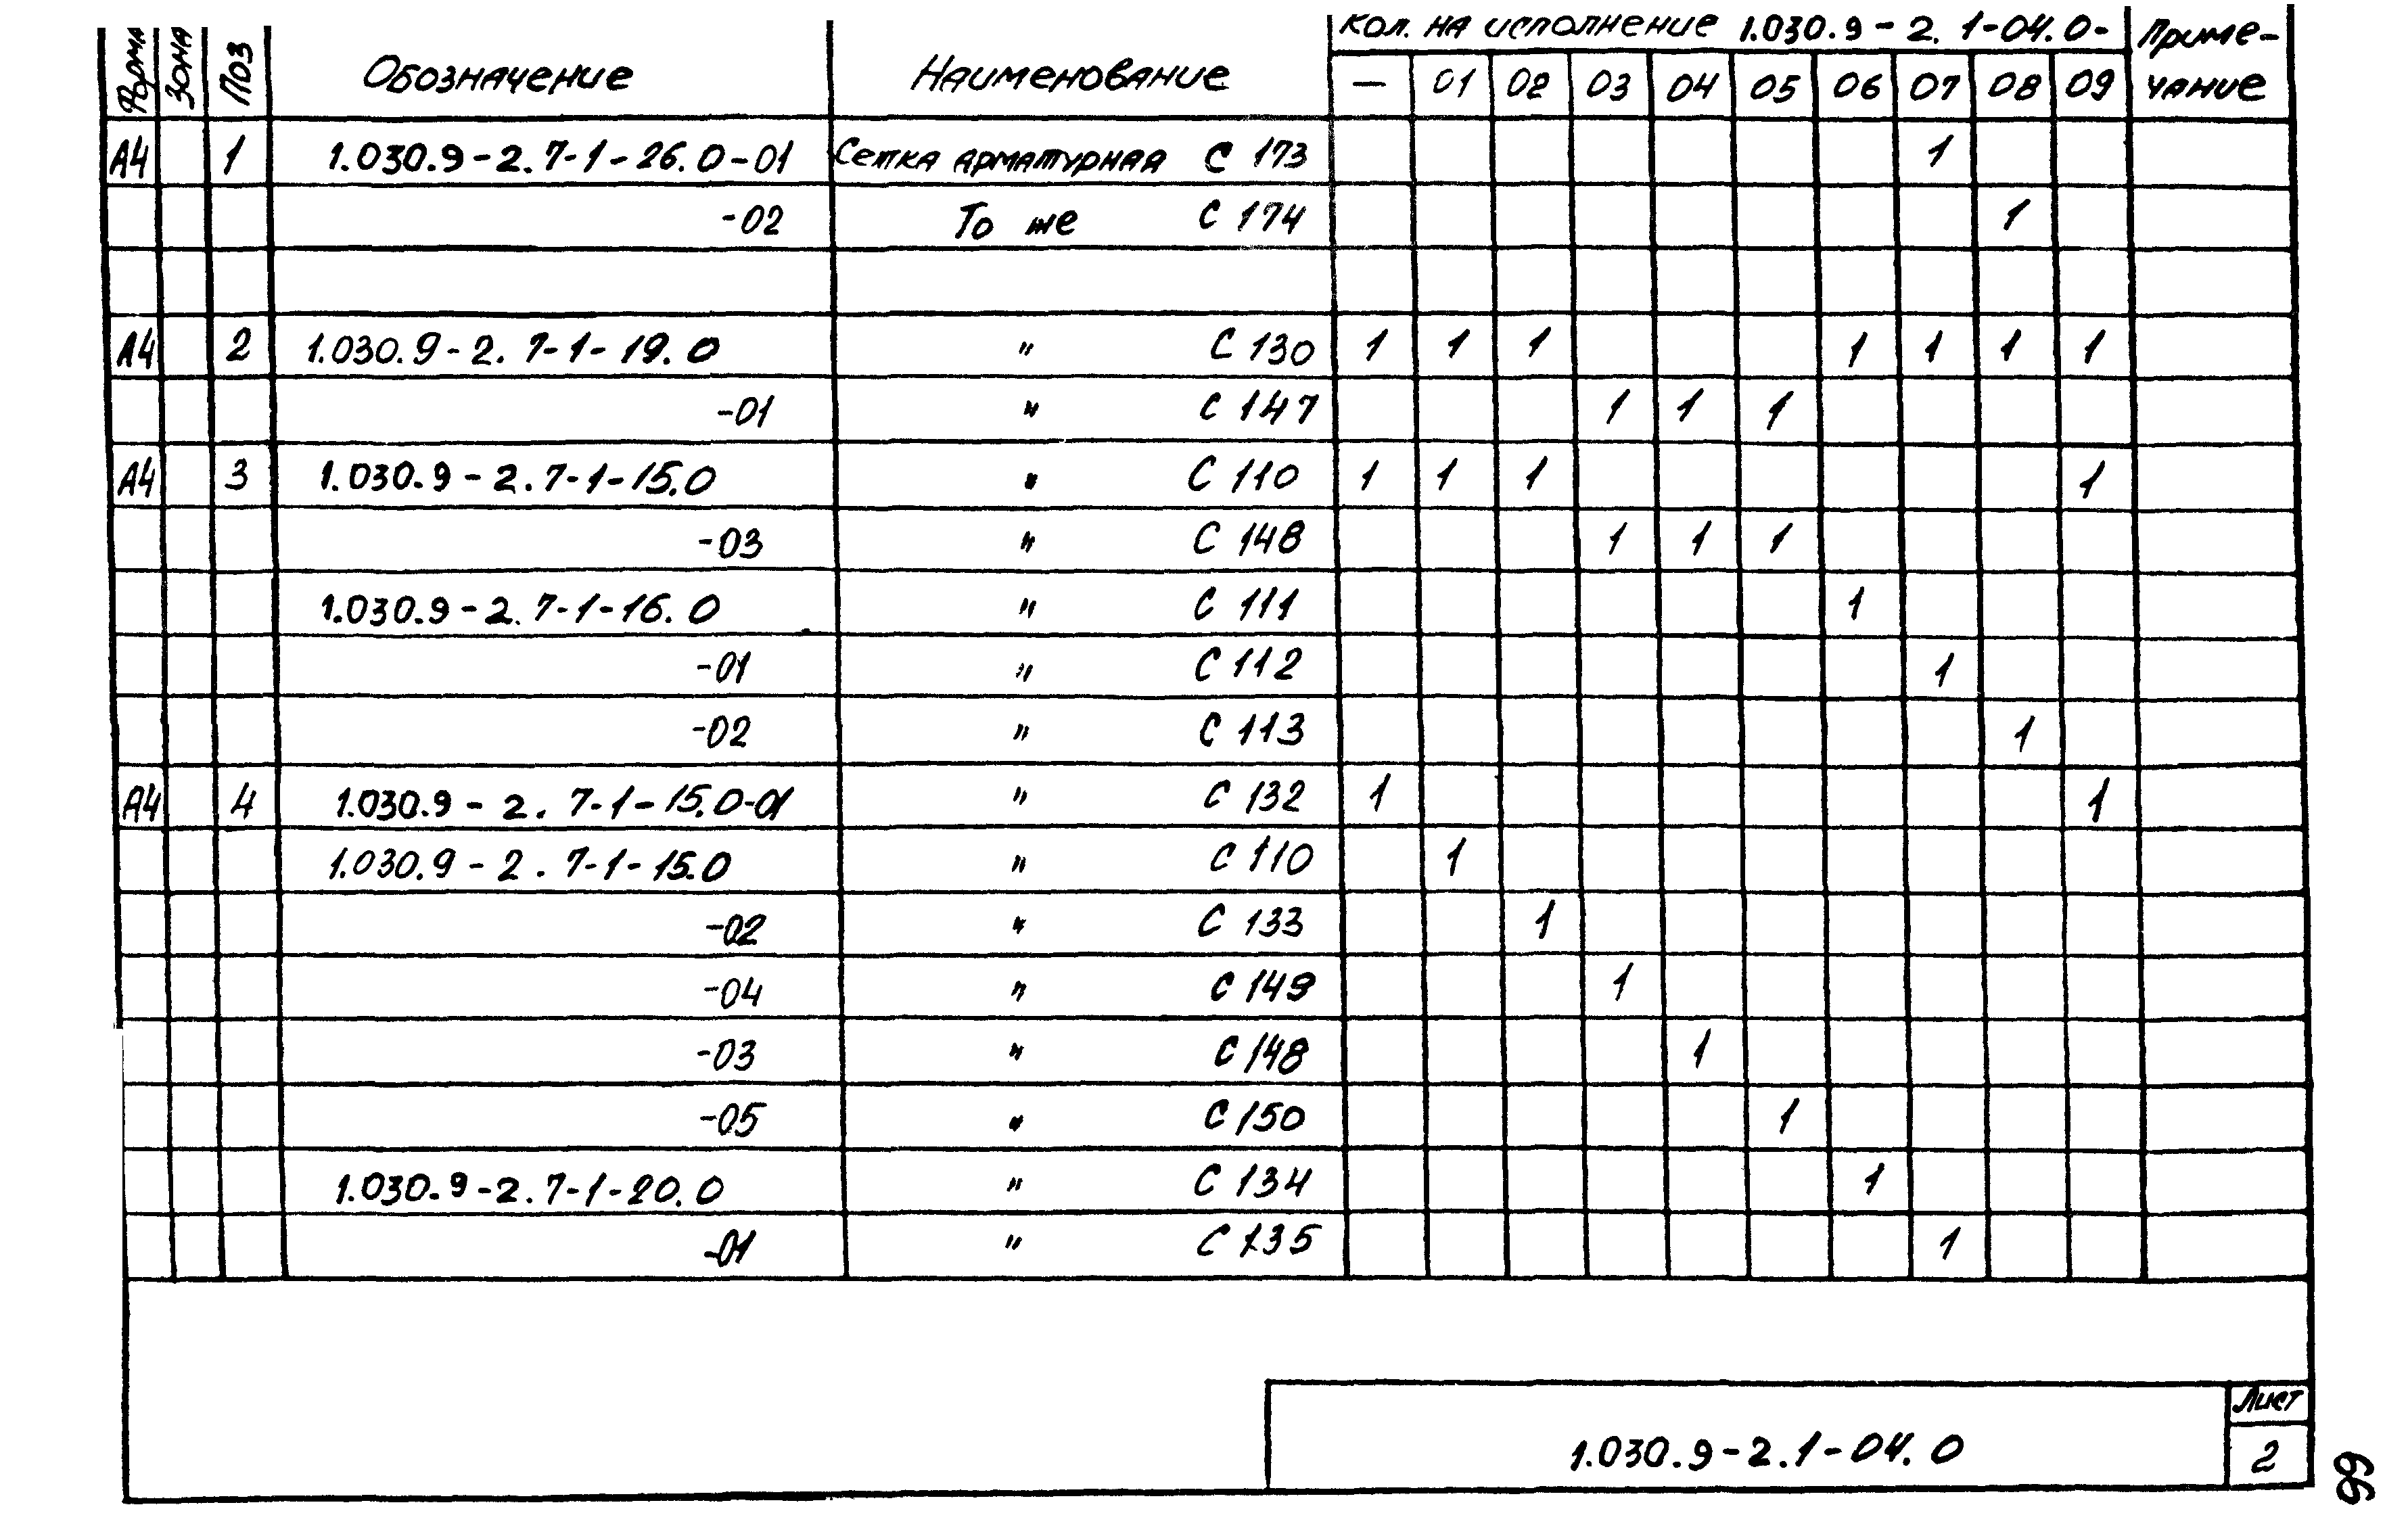 Форма Зона Поз Обозначение Наименование Кол. на исполнение 1.030.9-2.1-04.0- Приме-
— 01 02 03 04 05 06 07 08 09 чание
А4 1 1.030.9-2.7-1-26.0-01 Сетка арматурная С 173 1
-02 То же С 174 1
А4 2 1.030.9-2.7-1-19.0 " С 130 1 1 1 1 1 1 1
-01 " С 147 1 1 1
А4 3 1.030.9-2.7-1-15.0 " С 110 1 1 1 1
-03 " С 148 1 1 1
1.030.9-2.7-1-16.0 " С 111 1
-01 " С 112 1
-02 " С 113 1
А4 4 1.030.9-2.7-1-15.0-01 " С 132 1 1
1.030.9-2.7-1-15.0 " С 110 1
-02 " С 133 1
-04 " С 149 1
-03 " С 148 1
-05 " С 150 1
1.030.9-2.7-1-20.0 " С 134 1
-01 " С 135 1
Лист
1.030.9-2.1-04.0 2
66